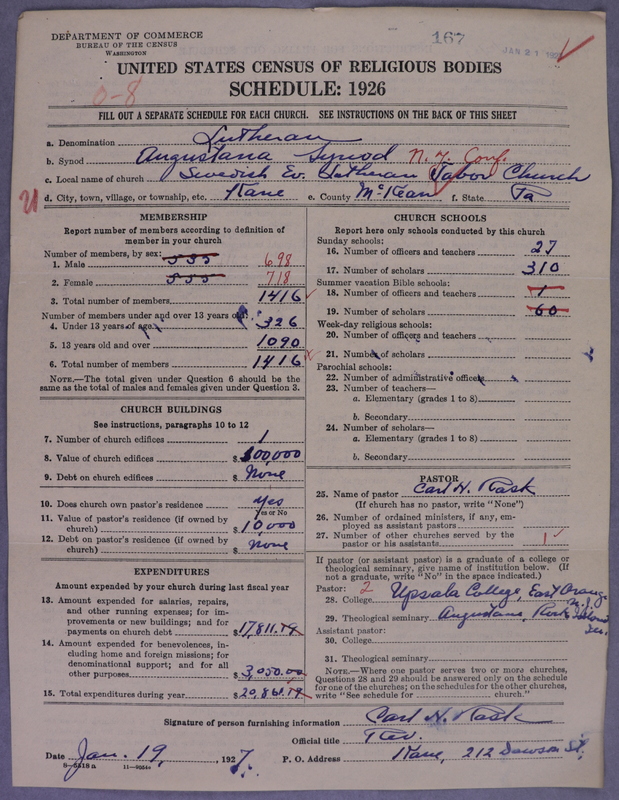 DEPARTMENT OF COMMERCE
BUREAU OF THE CENSUS
WASHINGTON
167
JAN 21
UNITED STATES CENSUS OF RELIGIOUS BODIES
SCHEDULE: 1926
0-8
FILL OUT A SEPARATE SCHEDULE FOR EACH CHURCH. SEE INSTRUCTIONS ON THE BACK OF THIS SHEET
a. Denomination Lutheran
b. Synod Augustana Synod N.Y. Conf.
c. Local name of church Swedish Ev. Lutheran Tabor Church
d. City, town, village, or township, etc. Kane e. County McKean f. State Pa
MEMBERSHIP
Report number of members according to definition of
member in your church
Number of members, by sex:
1. Male 535 698
2. Female 555 718
3. Total number of members 1416
Number of members under and over 13 years old:
4. Under 13 years of age 326
5. 13 years old and over 1090
6. Total number of members 1416
NOTE.—The total given under Question 6 should be the
same as the total of males and females given under Question 3.
CHURCH BUILDINGS
See instructions, paragraphs 10 to 12
7. Number of church edifices 1
8. Value of church edifices $100,000
9. Debt on church edifices $ None
10. Does church own pastor's residence Yes
Yes or No
11. Value of pastor's residence (if owned by
church) $10,000
12. Debt on pastor's residence (if owned by
church) $ None
EXPENDITURES
Amount expended by your church during last fiscal year
13. Amount expended for salaries, repairs,
and other running expenses; for im-
provements or new buildings; and for
payments on church debt $17,811.79
14. Amount expended for benevolences, in-
cluding home and foreign missions; for
denominational support; and for all
other purposes $3,050.00
15. Total expenditures during year $20,861.79
CHURCH SCHOOLS
Report here only schools conducted by this church
Sunday schools:
16. Number of officers and teachers 27
17. Number of scholars 310
Summer vacation Bible schools:
18. Number of officers and teachers 1
19. Number of scholars 60
Week-day religious schools:
20. Number of officers and teachers
21. Number of scholars
Parochial schools:
22. Number of administrative officers
23. Number of teachers—
a. Elementary (grades 1 to 8)
b. Secondary
24. Number of scholars—
a. Elementary (grades 1 to 8)
b. Secondary
PASTOR
25. Name of pastor Carl H. Rask
(If church has no pastor, write "None")
26. Number of ordained ministers, if any, em-
ployed as assistant pastors
27. Number of other churches served by the
pastor or his assistants 1
If pastor (or assistant pastor) is a graduate of a college or
theological seminary, give name of institution below. (If
not a graduate, write "No" in the space indicated.)
Pastor: 2
28. College Upsala College, East Orange N.J.
29. Theological seminary Augustana, Rock Island
Assistant pastor:
30. College
31. Theological seminary
NOTE.—Where one pastor serves two or more churches,
Questions 28 and 29 should be answered only on the schedule
for one of the churches; on the schedules for the other churches,
write "See schedule for church."
Signature of person furnishing information Carl H. Rask
Official title Rev.
Date Jan. 19, 1927. P. O. Address Kane, 212 Dawson St.